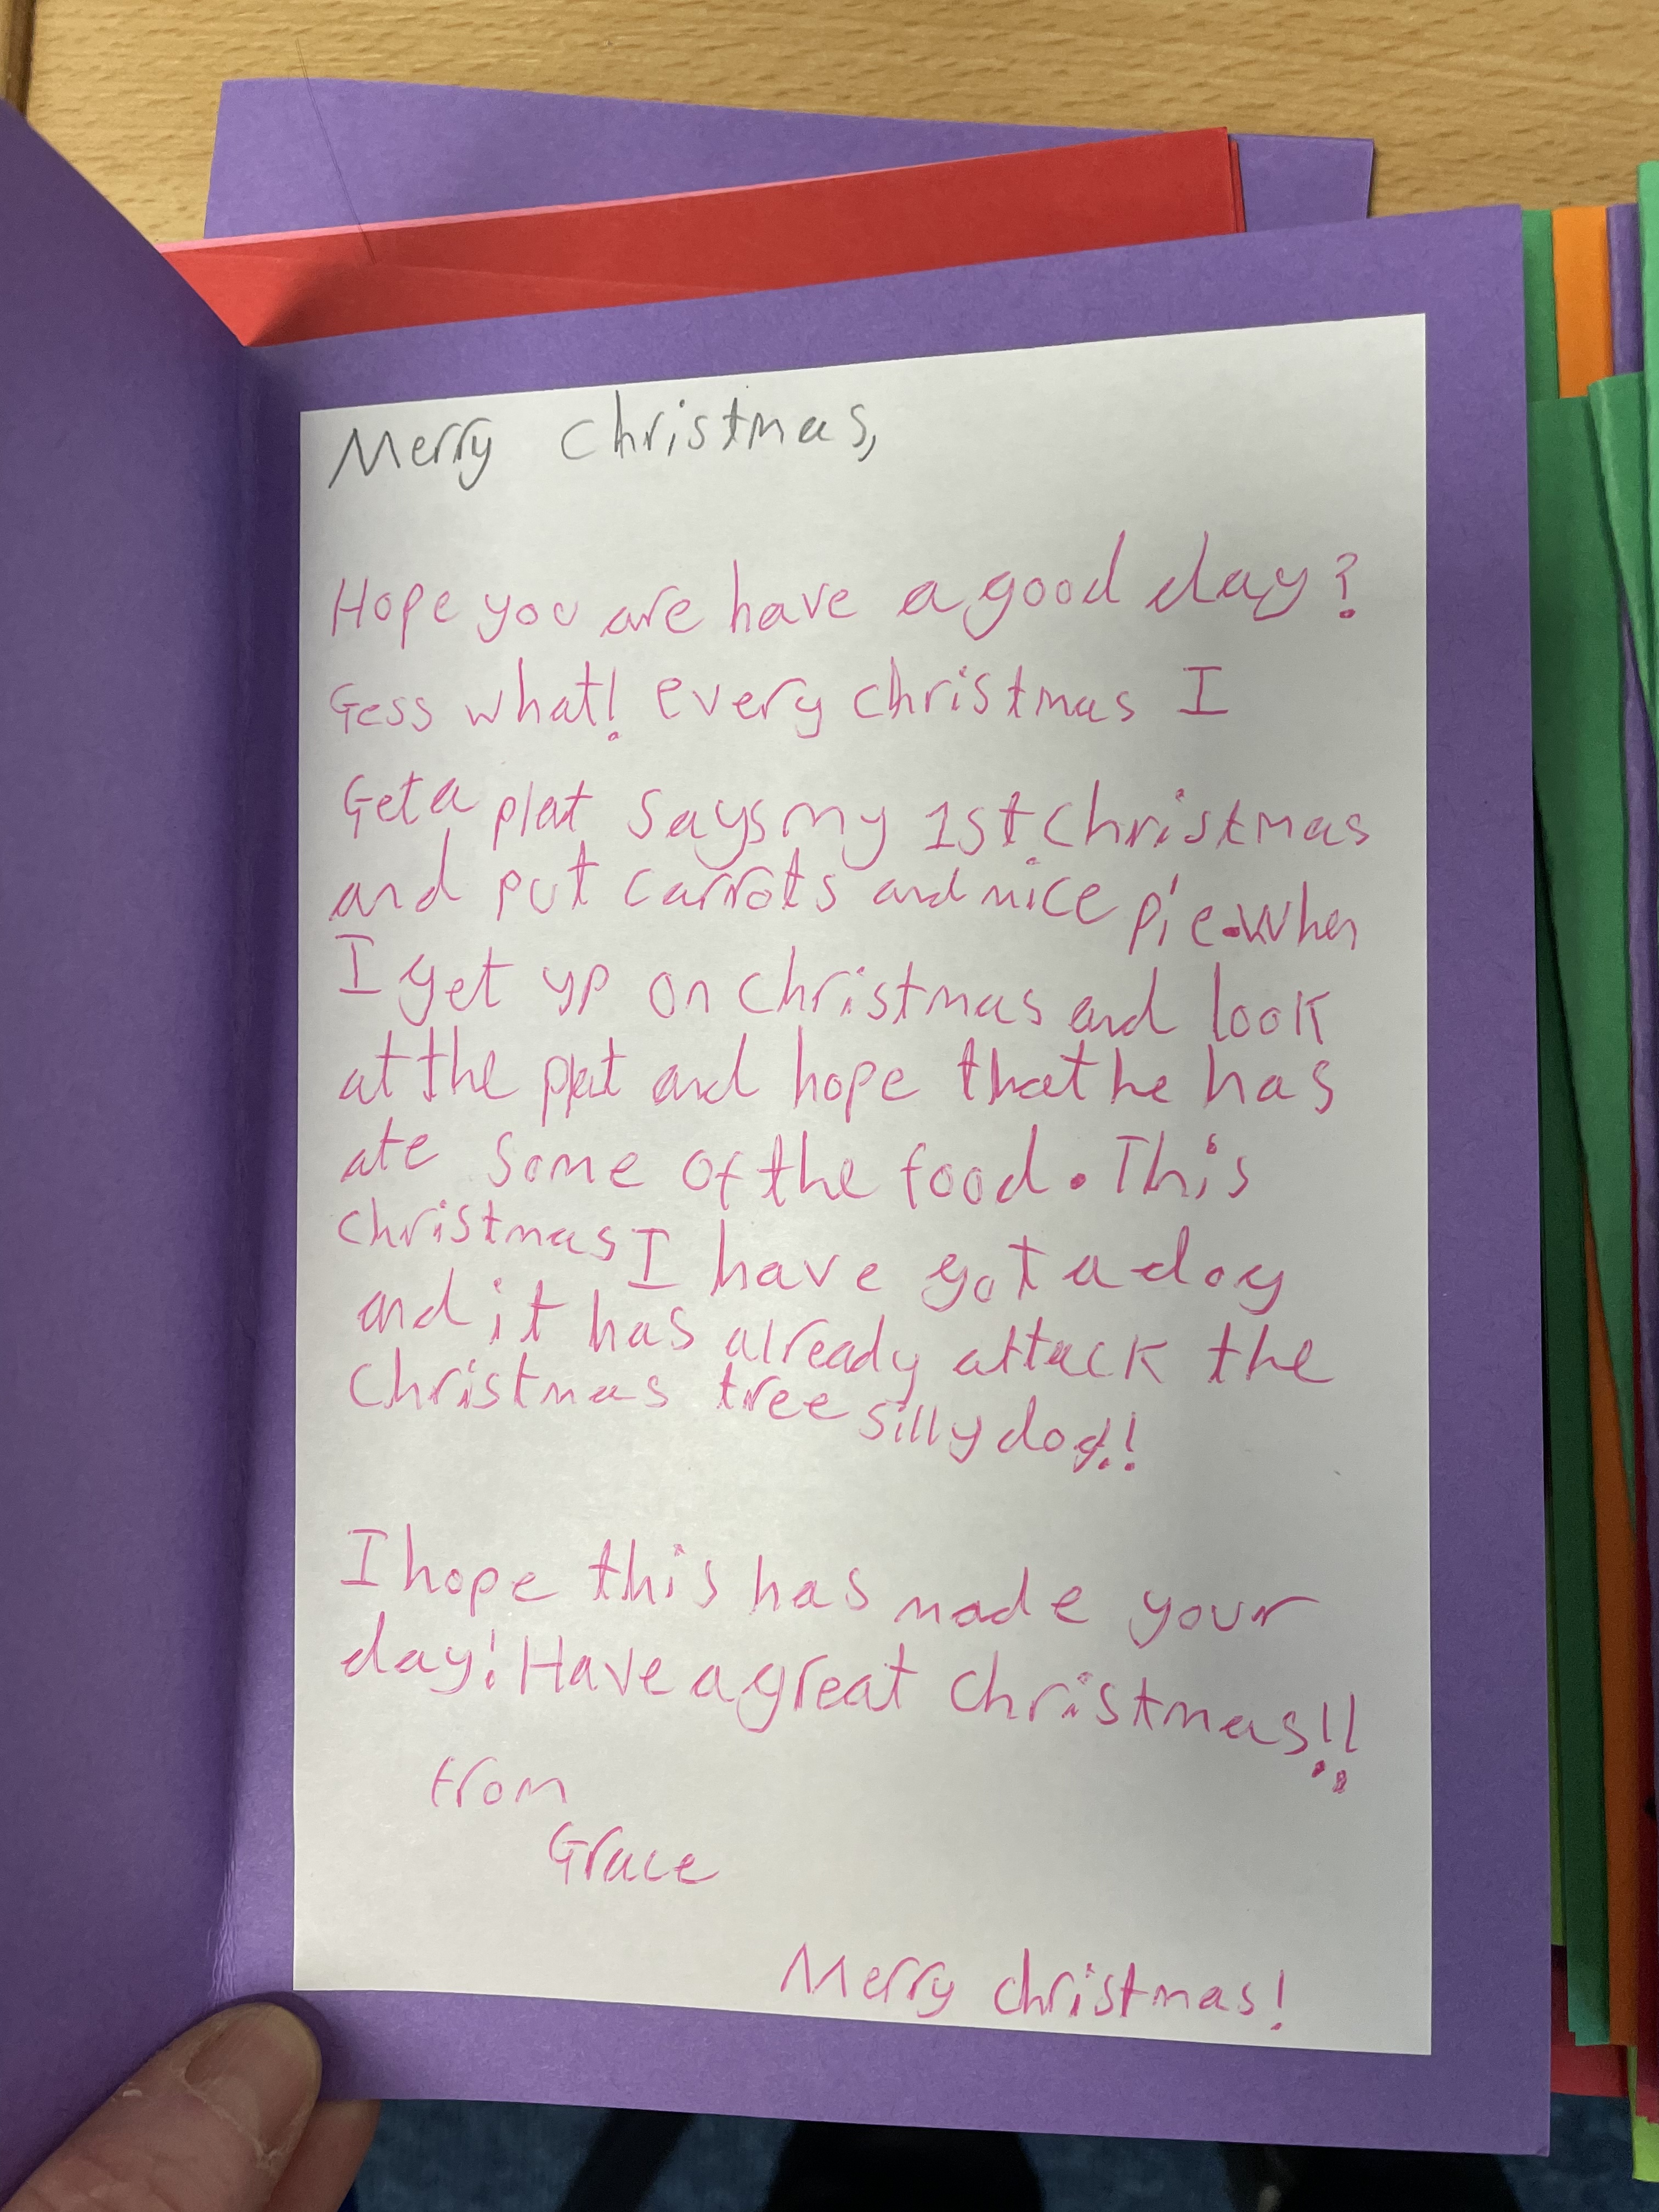 Merry Christmas,
Hope you are have a good day?
Gess what! every christmas I
Get a plat says my 1st christmas
and put carrots and mice pie. When
I get up on christmas and look
at the plat and hope that he has
ate some of the food. This
christmas I have got a dog
and it has already attack the
Christmas tree silly dog!!
I hope this has made your
day! Have a great christmas!!
from
Grace
Merry christmas!